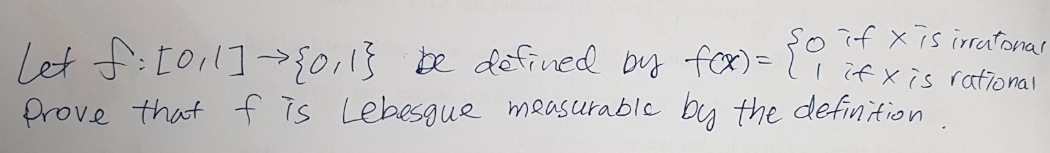 Let f:[0,1]→{0,1} be defined by f(x)= {0 if x is irratonal
1 if x is rational
prove that f is Lebesgue measurable by the definition.